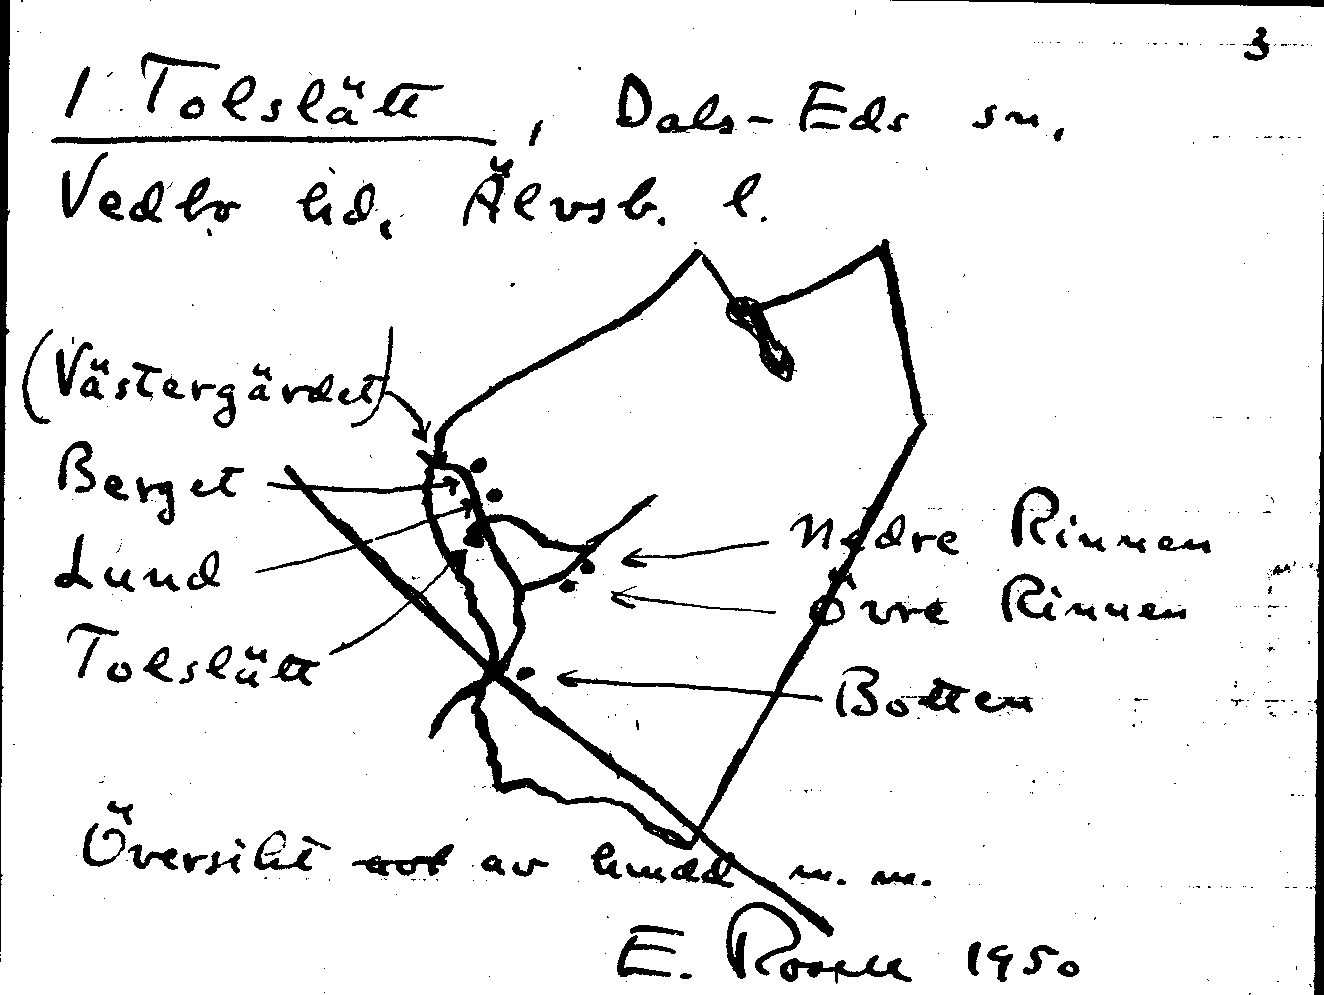 3
1 Tolslätt, Dals-Eds sn,
Vedbo hd, Älvsb. l.
(Västergärdet)
Berget
Lund
Tolslätt
Nedre Rinnen
Övre Rinnen
Botten
Översikt av hmdd m.m.
E. Rosell 1950